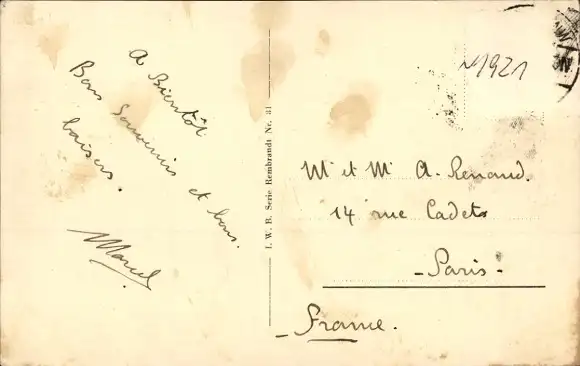 A Bientôt
Bons Souvenirs et bons
baisers.
Marcel
I. W. B. Serie Rembrandt Nr. 31
1921
Mr et Me A. Renaud.
14 rue Cadets
- Paris -
- France.